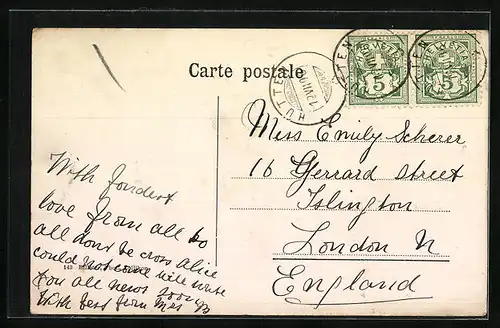 Carte postale
HUTTEN
12 VII 07
HELVETIA
5
HELVETIA
5
Miss Emily Scherer
16 Gerrard Street
Islington
London N
England
With fondest
love from all to
all dont be cross Alice
could not come will write
you all news soon
With best from